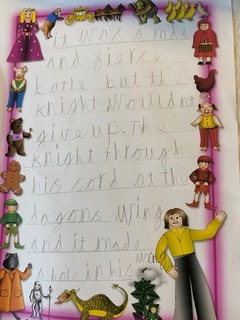 it was a rude
and fierce
batle but the
knight wouldnt
give up. The
knight through
his sord at the
dagons wing
and it made
a hole in his wing